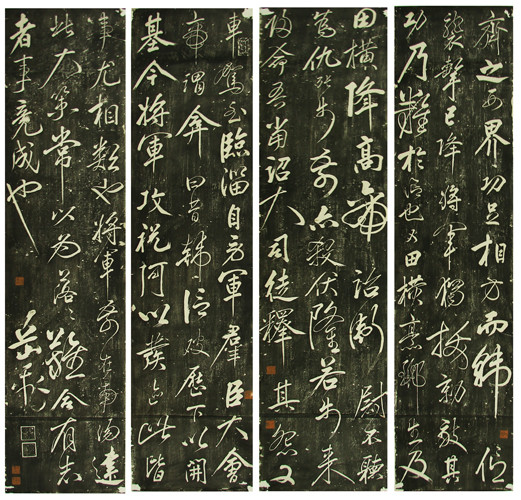 齊之西界功足相方而韓信
襲擊已降將軍獨拔勍敵其
功乃難於信也又田橫烹酈生及
田橫降高帝詔衛尉不聽
為仇張步前亦殺伏隆若步來
歸命吾當詔大司徒釋其怨又
車駕至臨淄自勞軍羣臣大會
帝謂弇曰昔韓信破歷下以開
基今將軍攻祝阿以發迹此皆
事尤相類也將軍前在南陽建
此大策常以為落落難合有志
者事竟成也
岳飛